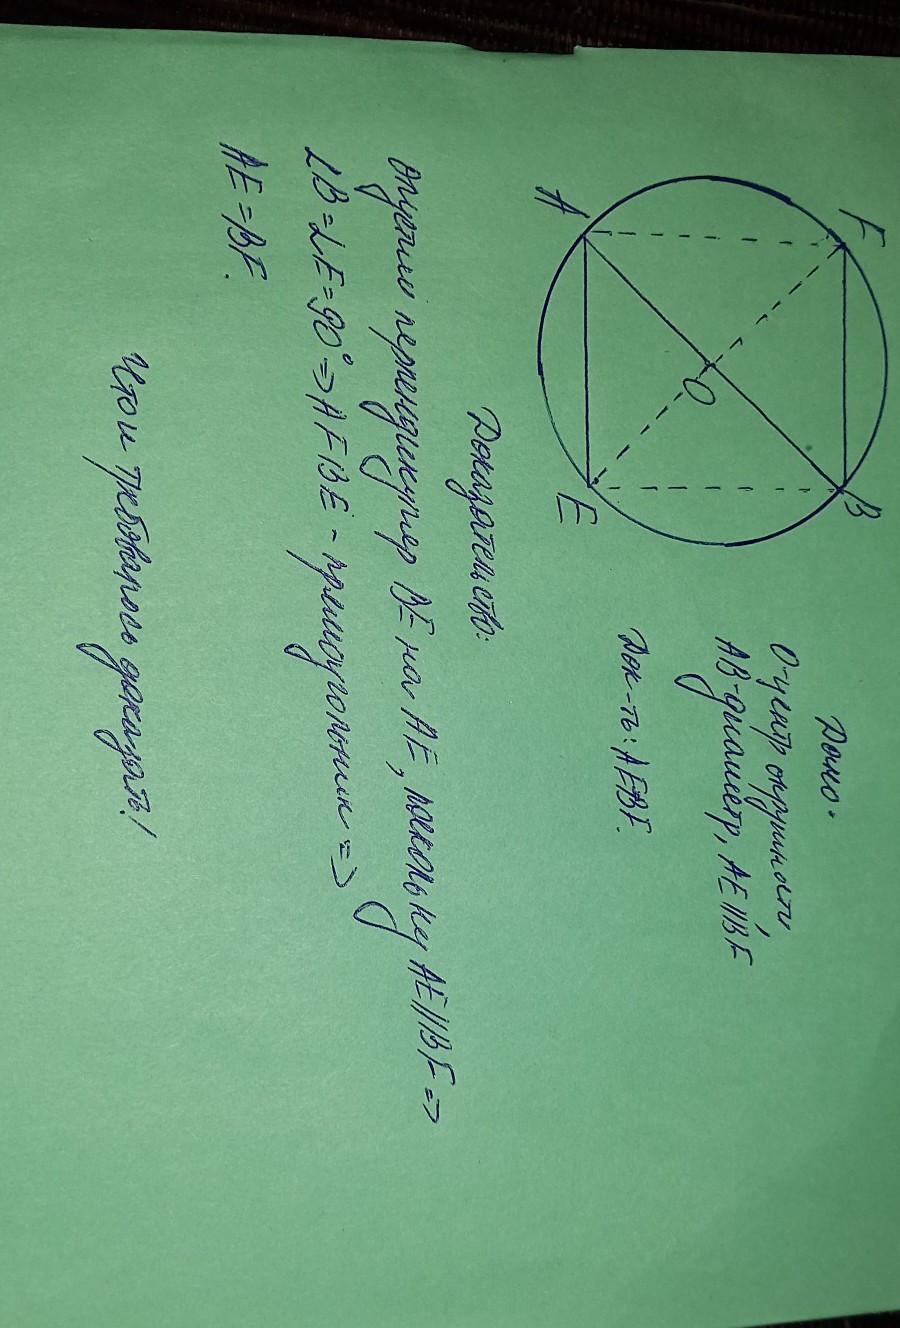 F
B
A
E
O
Дано:
О-центр окружности,
АВ-диаметр, АЕ||BF
Док-ть: АЕ=BF.
Доказательство:
Опустим перпендикуляр ВЕ на АЕ, поскольку АЕ||BF =>
∠B=∠E=90° => AFBE - прямоугольник =>
АЕ=BF.
Что и требовалось доказать!